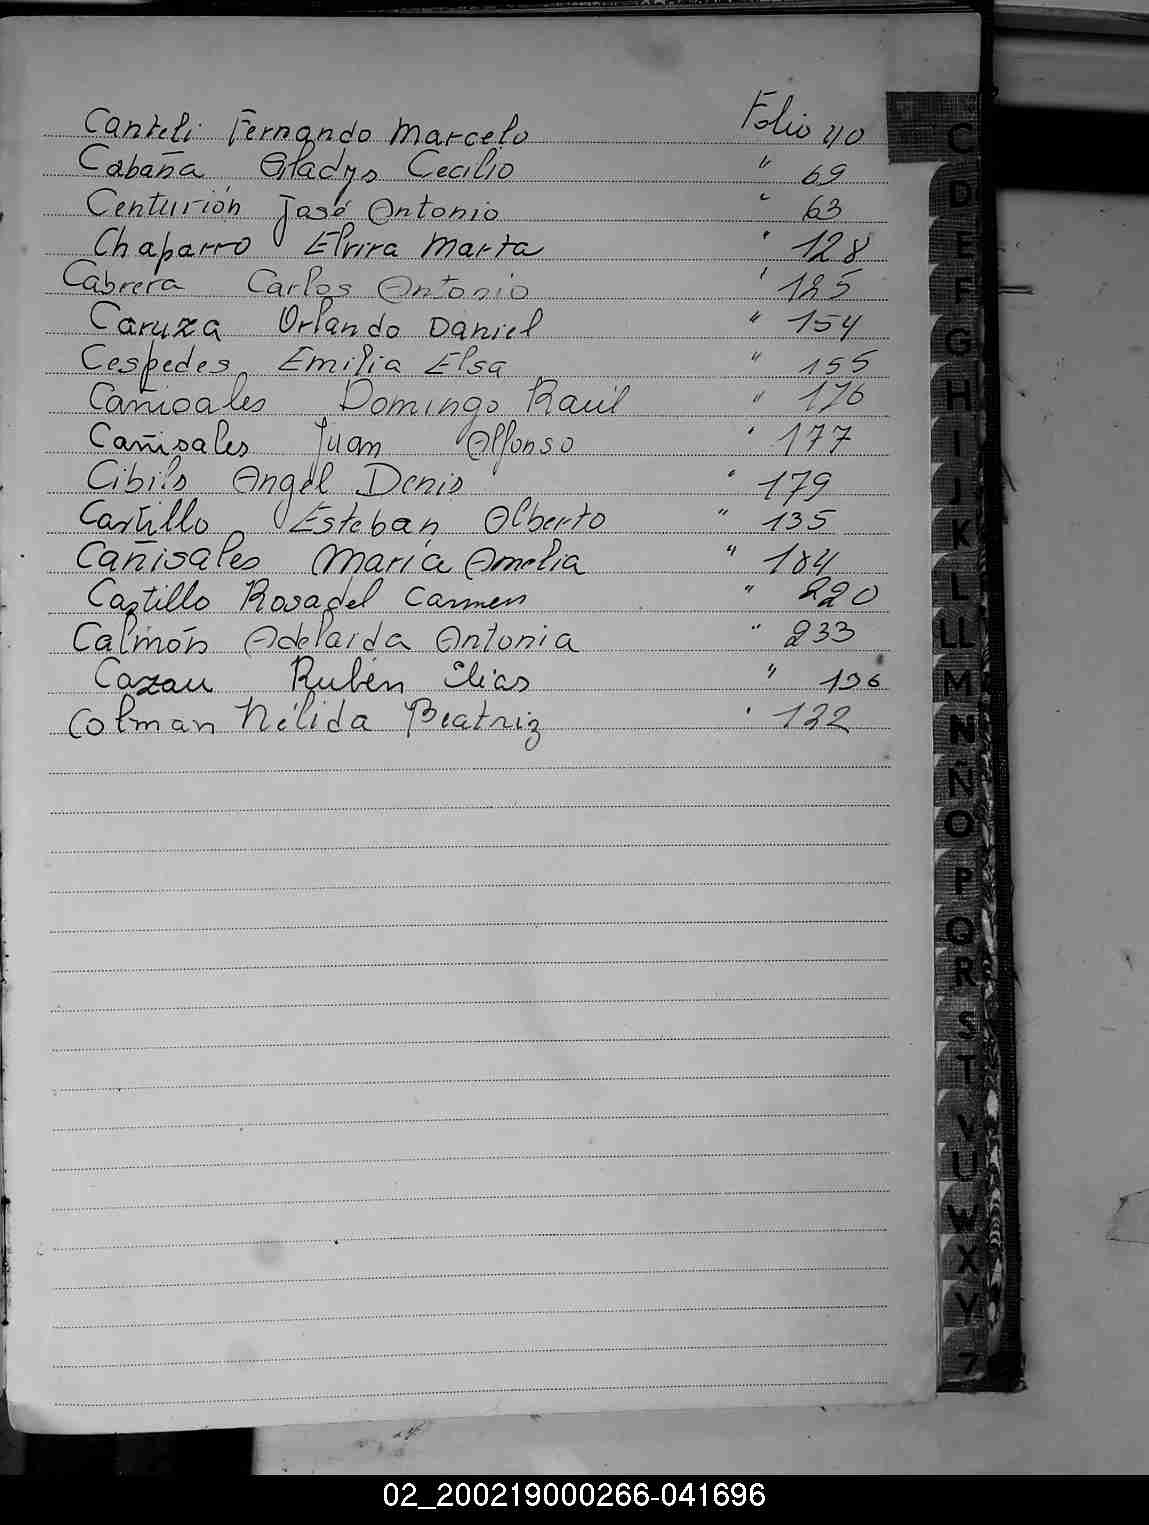 Canteli Fernando Marcelo Folio 40
Cabaña Gladys Cecilio " 69
Centurión José Antonio " 63
Chaparro Elvira Marta " 128
Cabrera Carlos Antonio " 125
Caruza Orlando Daniel " 154
Cespedes Emilia Elsa " 155
Cañisales Domingo Raúl " 176
Cañisales Juan Alfonso " 177
Cibils Angel Denis " 179
Castillo Esteban Alberto " 135
Cañisales María Amelia " 184
Castillo Rosa del Carmen " 220
Calmón Adelaida Antonia " 233
Cazau Rubén Elias " 196
Colman Nélida Beatriz " 122
C
D
E
F
G
H
I
J
K
L
LL
M
N
Ñ
O
P
Q
R
S
T
V
U
W
X
Y
Z
02_200219000266-041696